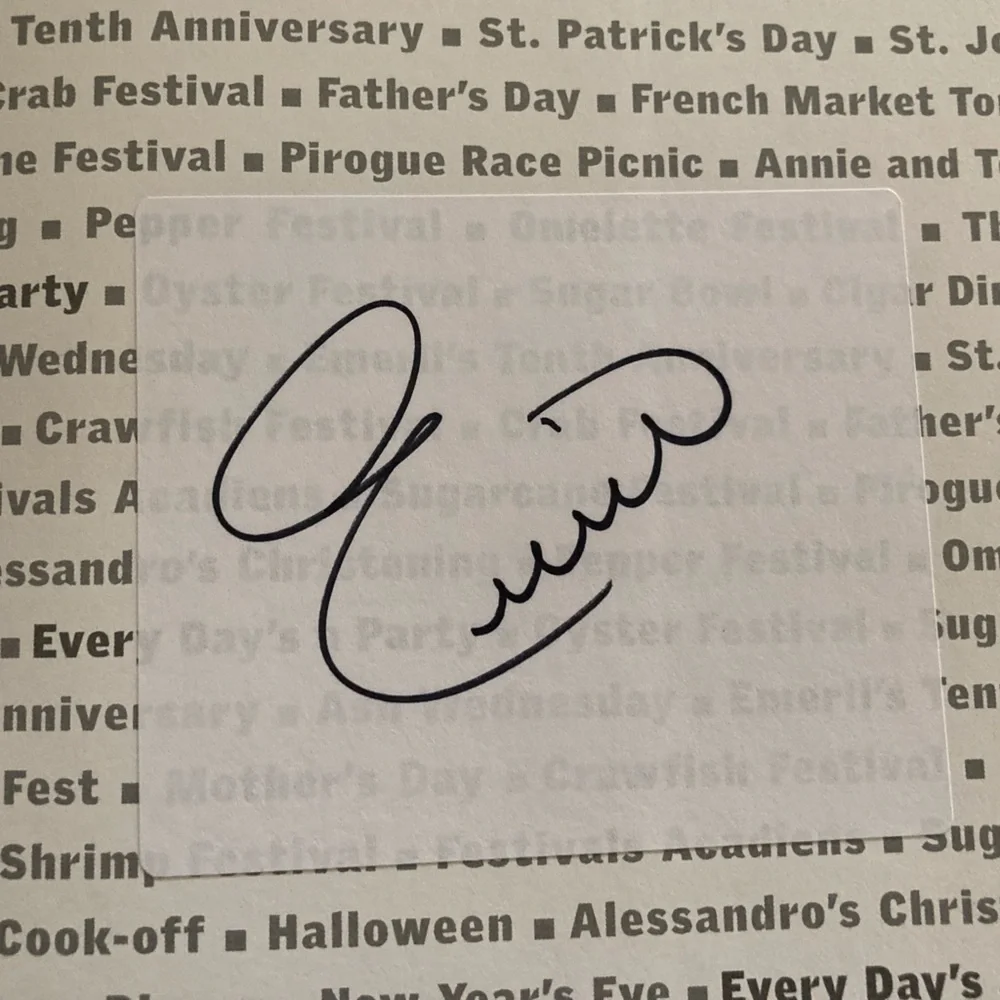 Tenth Anniversary ■ St. Patrick's Day ■ St. Jo
Crab Festival ■ Father's Day ■ French Market To
ne Festival ■ Pirogue Race Picnic ■ Annie and T
g ■ Pepper Festival ■ Omelette Festival ■ Th
arty ■ Oyster Festival ■ Sugar Bowl ■ Cigar Din
Wednesday ■ Emeril's Tenth Anniversary ■ St.
■ Crawfish Festival ■ Crab Festival ■ Father's
ivals Acadiens ■ Sugarcane Festival ■ Pirogue
essandro's Christening ■ Pepper Festival ■ Om
■ Every Day's a Party ■ Oyster Festival ■ Sug
nniversary ■ Ash Wednesday ■ Emeril's Ten
Fest ■ Mother's Day ■ Crawfish Festival ■
Shrimp Festival ■ Festivals Acadiens ■ Sug
Cook-off ■ Halloween ■ Alessandro's Chris
New Year's Eve ■ Every Day's